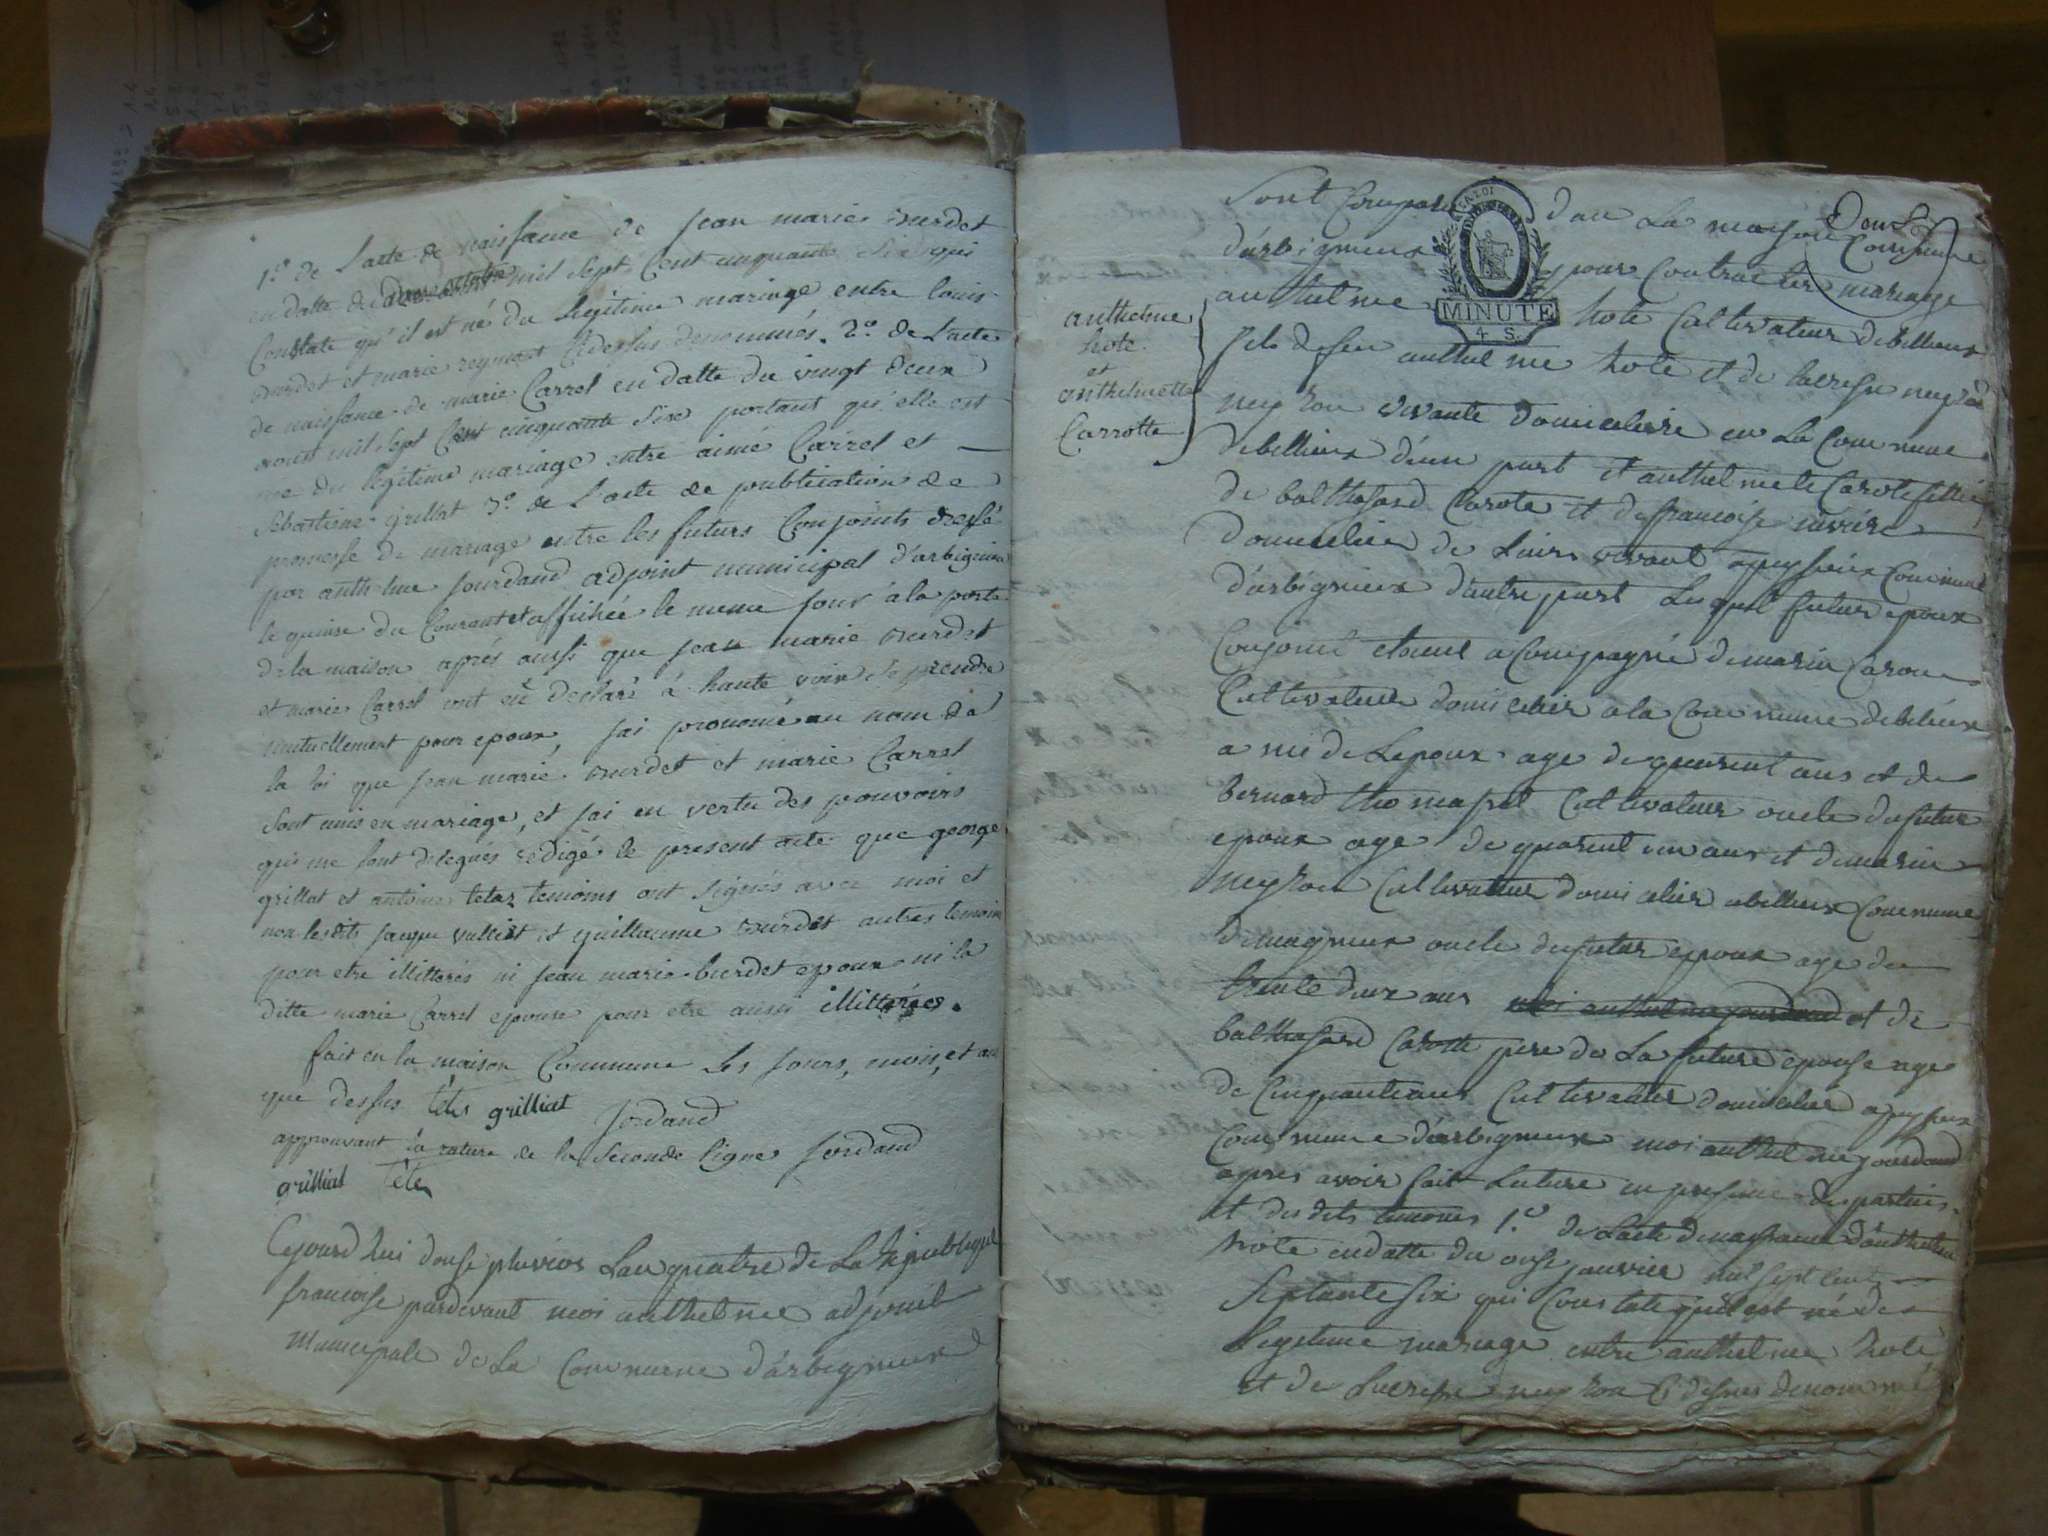 1.º de L'acte de naissance de jean marie Burdet
en datte du mil sept Cent cinquante six qui
Constate qu'il est né du Légitime mariage entre louis
Burdet et marie reynaut Cidessus denommés. 2.º de L'acte
de naissance de marie Carrel en datte du vingt deux
aoust mil sept Cent cinquante six portant qu'elle est
née du légitime mariage entre aimé Carrel et
Sebastiene grillat 3.º de L'acte de publication de
promesse de mariage entre les futurs Conjoints dressé
par anthelme jourdand adjoint municipal d'arbignieu
le quinse du Courant et affichée le meme jour à la porte
de la maison après aussi que jean marie Burdet
et marie Carrel ont eü declaré à haute voix se prendre
mutuellement pour epoux, jai prononcé au nom de
la loi que jean marie Burdet et marie Carrel
sont unis en mariage, et jai en vertu des pouvoirs
qui me sont delegués redigé le present acte que george
grillat et antoine tetaz temoins ont signés avec moi et
non lesdits jacque vulliet et guillaume Burdet autres temoins
pour etre illitterés ni jean marie burdet epoux ni la
ditte marie Carrel epouse pour etre aussi illitterées.
fait en la maison Commune les jours, mois, et an
que dessus grilliat jordand
approuvant la rature de la seconde ligne jordand
grilliat
Cejourd'hui douse pluvios Lan quatre de La republique
francoise pardevant moi anthelme adjoint
Municipale de La Commune d'arbignieux
Sont Comparu dan La maison Commune
d'arbignieux pour Contracter mariage
MINUTE
4 S.
anthelme
hote
et
anthelmette
Carrotte
anthelme hote Cultivateur debillieux
fils defeu anthelme hote et de lucresse
neyron vivante domiciliere en La Commune
debillieux d'une part et anthelmete Carote fillie
de balthasard Carote et de francoise
domicilier de Luirs vivant apeyzieux Commune
d'arbignieux d'autre part Lesquel futur epoux
Conjoint etant acompagné de marin Caron
Cultivateur domicilier a la Commune debilieux
a mi de Lepoux age de quarent ans et de
bernard thomasset Cultivateur oncle du futur
epoux age de quarent un ans et de marin
neyron Cultivateur domicilier abillieux Commune
de magnieux oncle dufutur epoux age de
trente deux ans moi anthelme jourdand et de
balthasard Carotte pere de La future epouse age
de Cinquantians Cultivateur domicilier apeyzieux
Commune d'arbignieux moi anthelme jourdand
apres avoir fait Lecture en presence des parties
et des dits temoins 1.º de Lacte de naissance d'anthelme
hote en datte du onse janvier mil sept Cent
Septante six qui Constate qu'il est né de
Legitime mariage entre anthelme hote
et de Lucresse neyron Ci desus denommé